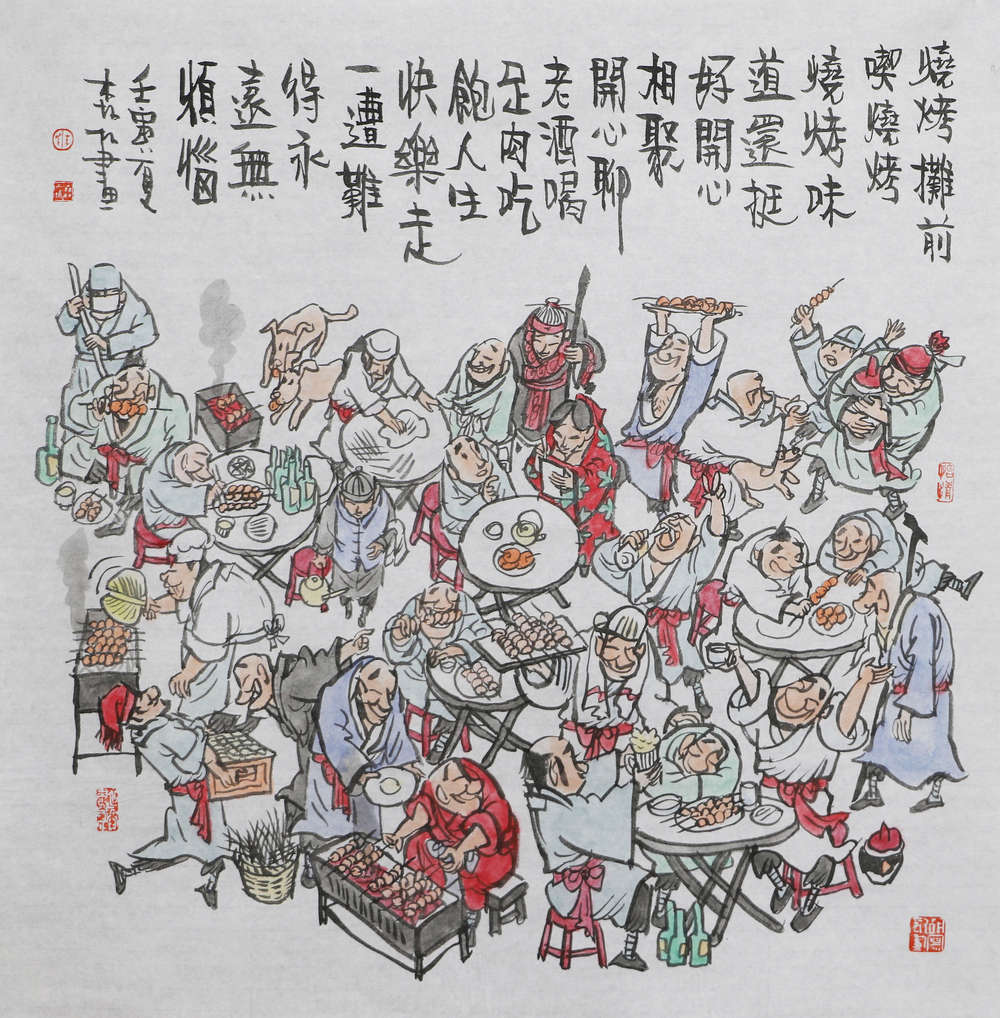 燒烤攤前
喫燒烤
燒烤味
道還挺
好開心
相聚
開心聊
老酒喝
足肉吃
飽人生
快樂走
一遭難
得永
遠無
煩惱
壬寅夏
畫